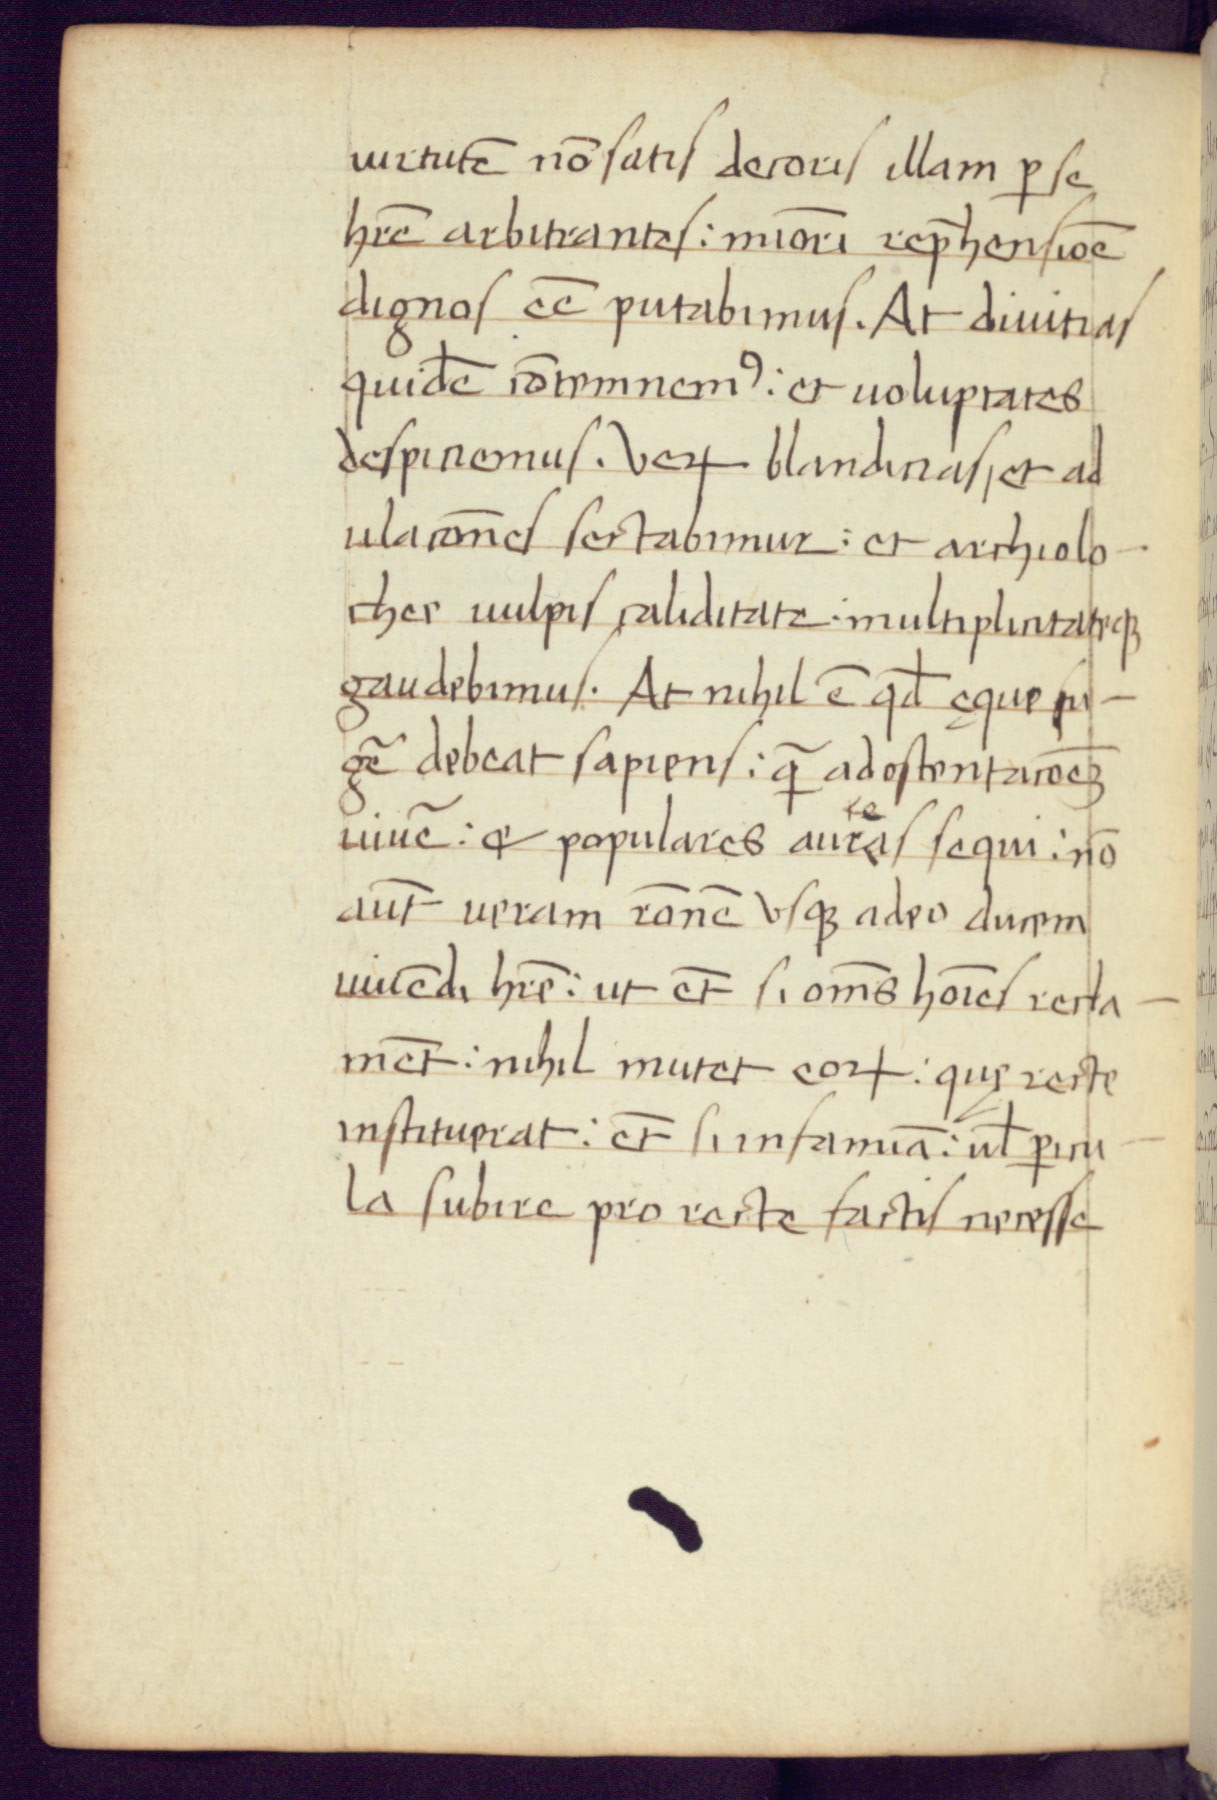 uirtutē nō satis decoris illam ꝑ se
hr̄e arbitrantes: mīori rep̄hensiōe
dignos eē̄ putabimus. At diuitias
quidē cōtemnemꝰ: et uoluptates
despiciemus. Veꝝ blanditias, et ad
ulatiōn̄es sectabimur: et archilo-
cheę uulpis caliditate: multiplicitateqꝫ
gaudebimus. At nihil ē qđ ęque fu-
gē debeat sapiens: q̄ꝫ ad ostentatiōeꝫ
uiuē: et populares aures sequi: nō
aūt ueram rōnē vsqꝫ adeo ducem
uiuēdi hr̄e: ut et̄ si om̄s hoīes recla-
mēt: nihil mutet eoꝝ: quę recte
instituerat: et̄ si infamiā: uł ꝑicu-
la subire pro recte factis necesse